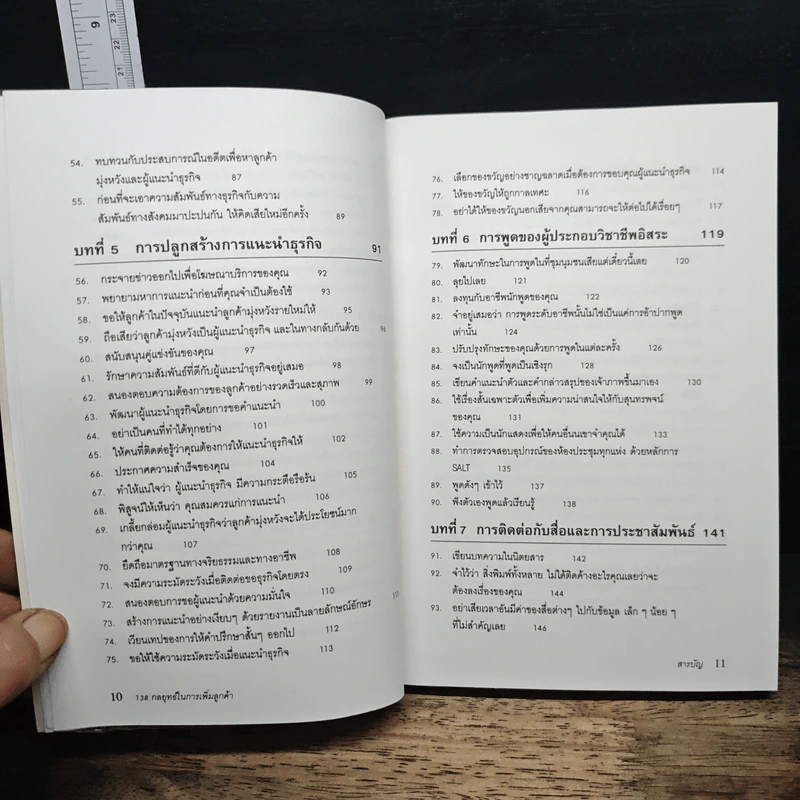 9
23
22
21
54. ทบทวนกับประสบการณ์ในอดีตเพื่อหาลูกค้า
มุ่งหวังและผู้แนะนำธุรกิจ 87
55. ก่อนที่จะเอาความสัมพันธ์ทางธุรกิจกับความ
สัมพันธ์ทางสังคมมาปะปนกัน ให้คิดเสียใหม่อีกครั้ง 89
บทที่ 5 การปลูกสร้างการแนะนำธุรกิจ 91
56. กระจายข่าวออกไปเพื่อโฆษณาบริการของคุณ 92
57. พยายามหาการแนะนำก่อนที่คุณจำเป็นต้องใช้ 93
58. ขอให้ลูกค้าในปัจจุบันแนะนำลูกค้ามุ่งหวังรายใหม่ให้ 95
59. ถือเสียว่าลูกค้ามุ่งหวังเป็นผู้แนะนำธุรกิจ และในทางกลับกันด้วย 96
60. สนับสนุนคู่แข่งขันของคุณ 97
61. รักษาความสัมพันธ์ที่ดีกับผู้แนะนำธุรกิจอยู่เสมอ 98
62. สนองตอบความต้องการของลูกค้าอย่างรวดเร็วและสุภาพ 99
63. พัฒนาผู้แนะนำธุรกิจโดยการขอคำแนะนำ 100
64. อย่าเป็นคนที่ทำได้ทุกอย่าง 101
65. ให้คนที่ติดต่อรู้ว่าคุณต้องการให้แนะนำธุรกิจให้ 102
66. ประกาศความสำเร็จของคุณ 104
67. ทำให้แน่ใจว่า ผู้แนะนำธุรกิจ มีความกระตือรือร้น 105
68. พิสูจน์ให้เห็นว่า คุณสมควรแก่การแนะนำ 106
69. เกลี้ยกล่อมผู้แนะนำธุรกิจว่าลูกค้ามุ่งหวังจะได้ประโยชน์มาก
กว่าคุณ 107
70. ยึดถือมาตรฐานทางจริยธรรมและทางอาชีพ 108
71. จงมีความระมัดระวังเมื่อติดต่อขอธุรกิจโดยตรง 109
72. สนองตอบการขอผู้แนะนำด้วยความมั่นใจ 110
73. สร้างการแนะนำอย่างเงียบๆ ด้วยรายงานเป็นลายลักษณ์อักษร
74. เวียนเทปของการให้คำปรึกษาสั้นๆ ออกไป 112
75. ขอให้ใช้ความระมัดระวังเมื่อแนะนำธุรกิจ 113
10 138 กลยุทธ์ในการเพิ่มลูกค้า
76. เลือกของขวัญอย่างชาญฉลาดเมื่อต้องการขอบคุณผู้แนะนำธุรกิจ 114
77. ให้ของขวัญให้ถูกกาลเทศะ 116
78. อย่าได้ให้ของขวัญนอกเสียจากคุณสามารถจะให้ต่อไปได้เรื่อยๆ 117
บทที่ 6 การพูดของผู้ประกอบวิชาชีพอิสระ 119
79. พัฒนาทักษะในการพูดในที่ชุมนุมชนเสียแต่เดี๋ยวนี้เลย 120
80. ลุยไปเลย 121
81. ลงทุนกับอาชีพนักพูดของคุณ 122
82. จำอยู่เสมอว่า การพูดระดับอาชีพนั้นไม่ใช่เป็นแค่การอ้าปากพูด
เท่านั้น 124
83. ปรับปรุงทักษะของคุณด้วยการพูดในแต่ละครั้ง 126
84. จงเป็นนักพูดที่พูดเป็นเชิงรุก 128
85. เขียนคำแนะนำตัวและคำกล่าวสรุปของเจ้าภาพขึ้นมาเอง 130
86. ใช้เรื่องสั้นเฉพาะตัวเพื่อเพิ่มความน่าสนใจให้กับสุนทรพจน์
ของคุณ 131
87. ใช้ความเป็นนักแสดงเพื่อให้คนอื่นนอนเขาจำคุณได้ 133
88. ทำการตรวจสอบอุปกรณ์ของห้องประชุมทุกแห่ง ด้วยหลักการ
SALT 135
89. พูดดังๆ เข้าไว้ 137
90. ฟังตัวเองพูดแล้วเรียนรู้ 138
บทที่ 7 การติดต่อกับสื่อและการประชาสัมพันธ์ 141
91. เขียนบทความในนิตยสาร 142
92. จำไว้ว่า สิ่งพิมพ์ทั้งหลาย ไม่ได้ติดค้างอะไรคุณเลยว่าจะ
ต้องลงเรื่องของคุณ 144
93. อย่าเสียเวลาอันมีค่าของสื่อต่างๆ ไปกับข้อมูล เล็ก ๆ น้อย ๆ
ที่ไม่สำคัญเลย 146
สารบัญ 11